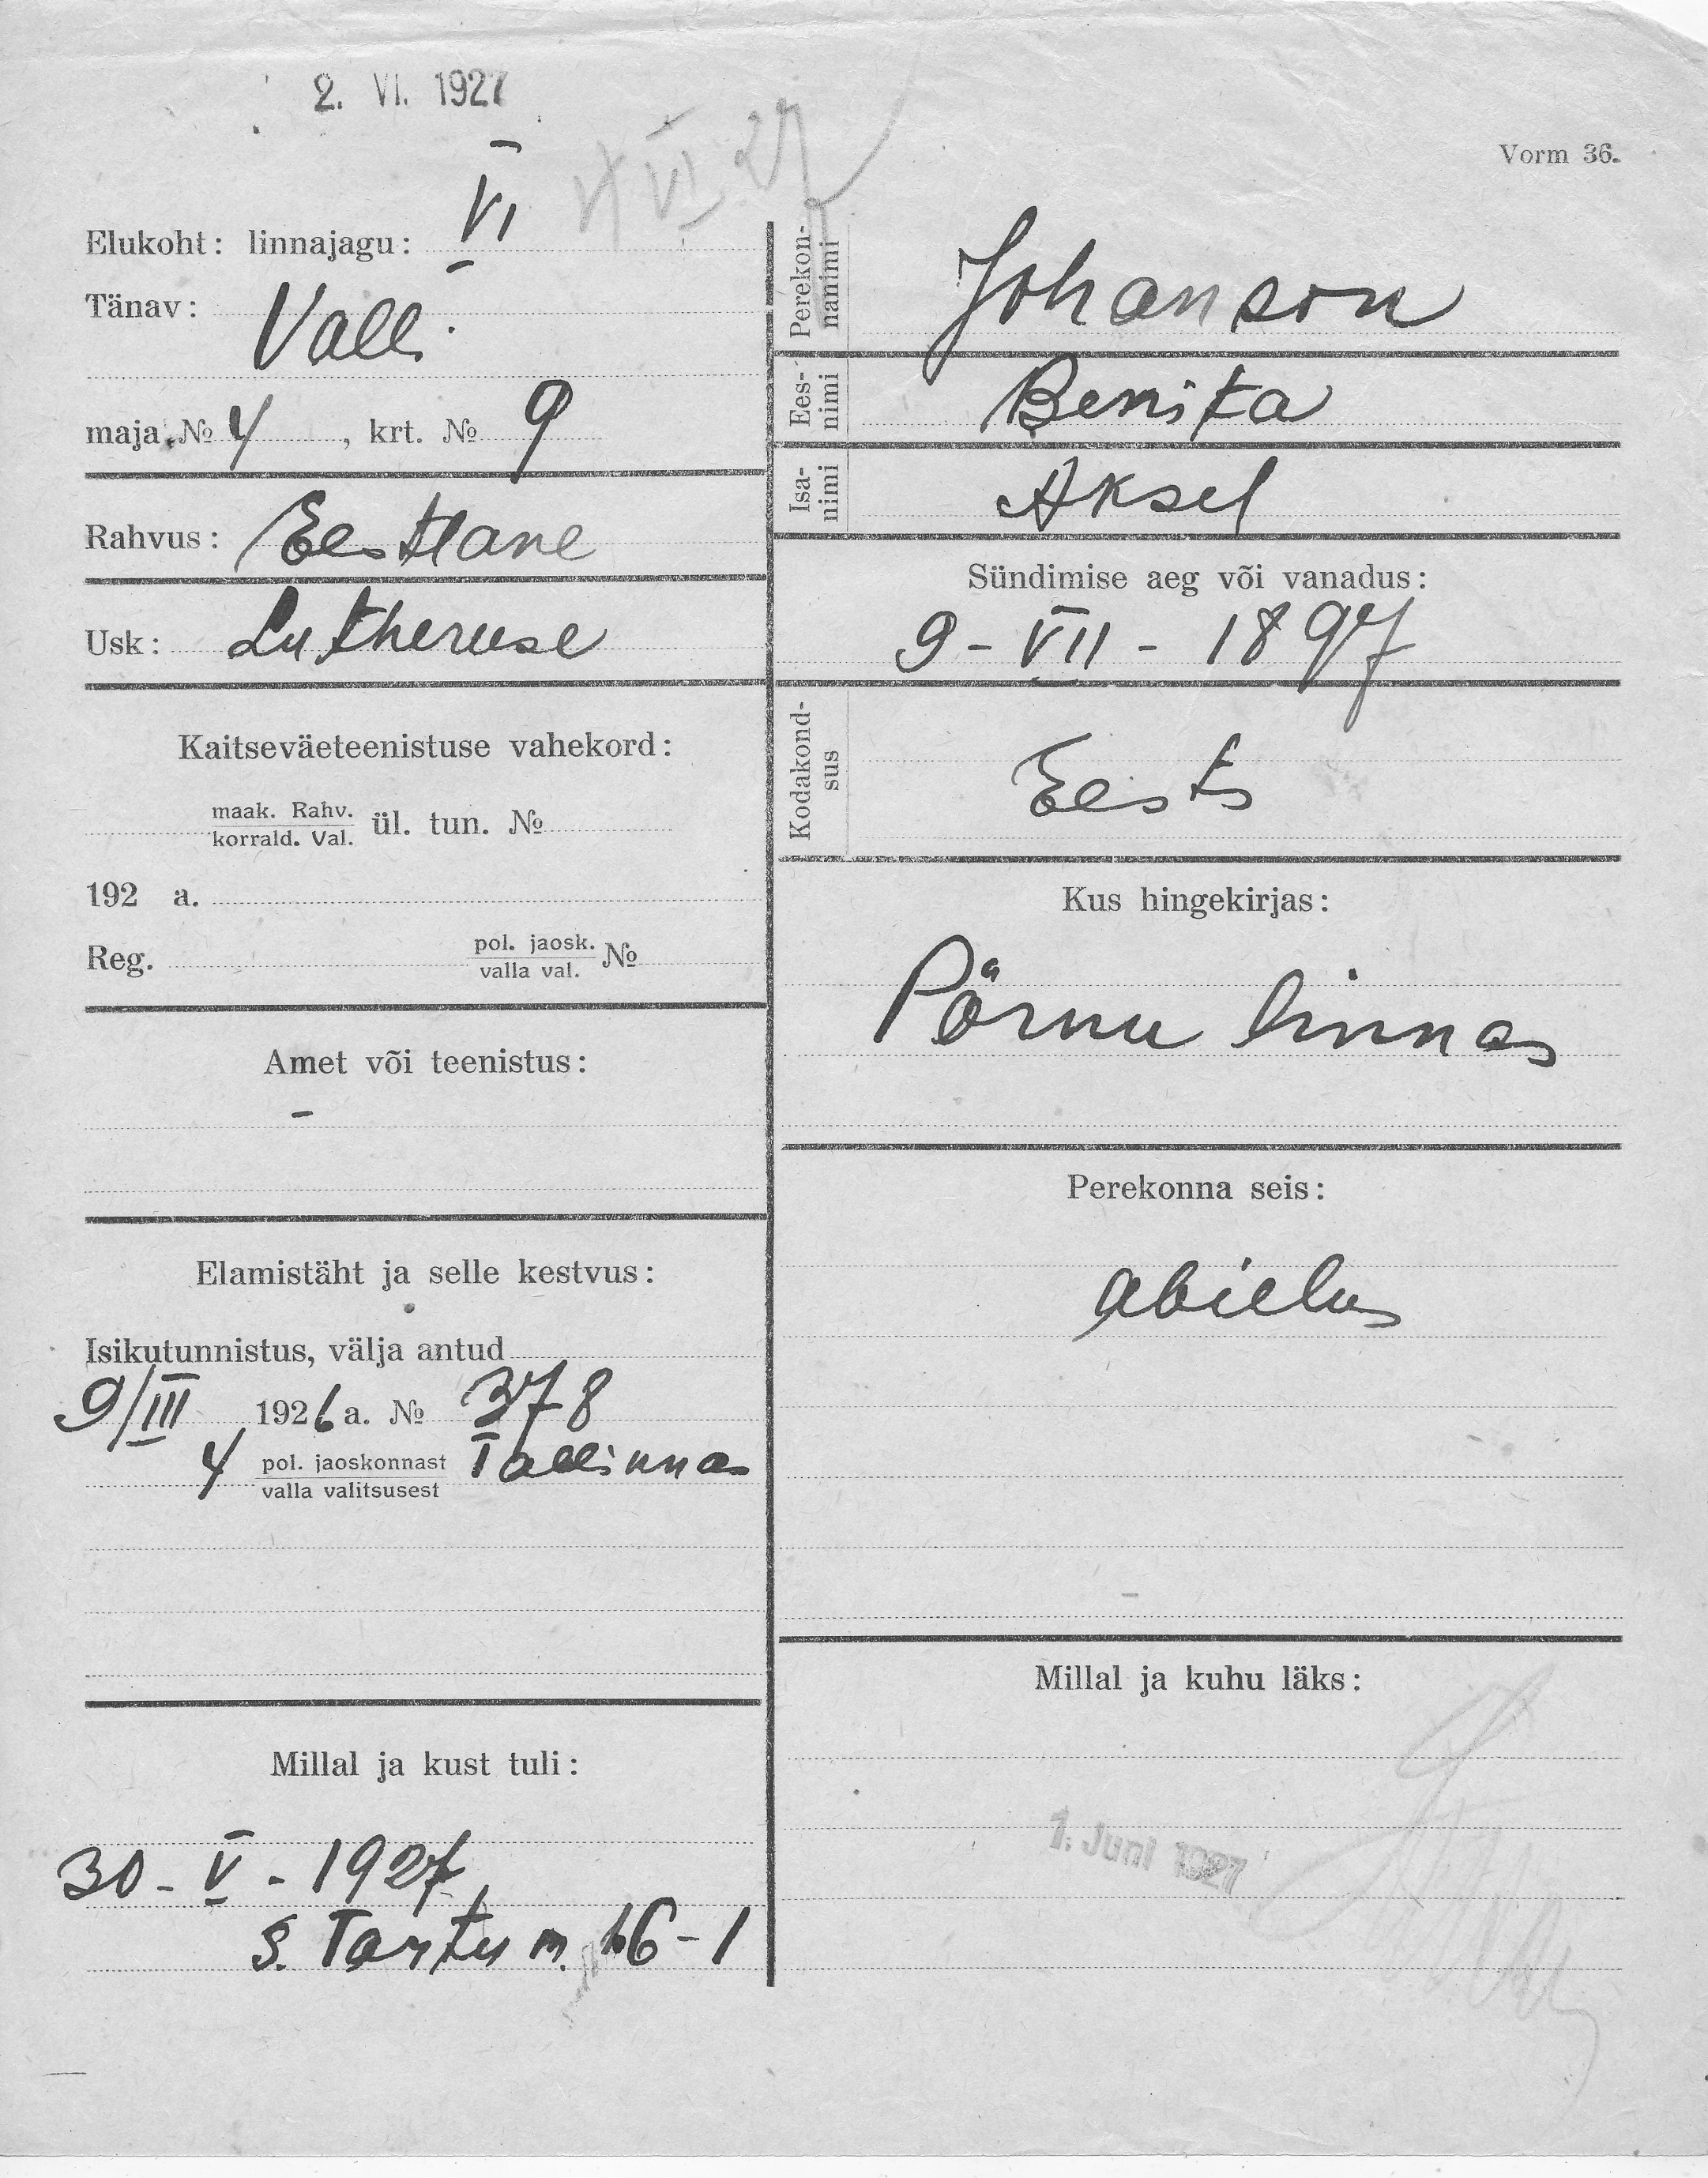 2. VI. 1927
VI 27
Vorm 36.
Elukoht: linnajagu: VI
Tänav: Valli
maja № 4, krt. № 9
Rahvus: Eestlane
Usk: Lutheruse
Kaitseväeteenistuse vahekord:
maak. Rahv.
korrald. Val. ül. tun. №
192 a.
Reg. pol. jaosk.
valla val. №
Amet või teenistus:
-
Elamistäht ja selle kestvus:
Isikutunnistus, välja antud
9/III 1926 a. № 378
4 pol. jaoskonnast Tallinnas
valla valitsusest
Millal ja kust tuli:
30-V-1927
S. Tartu m. 16-1
Perekon-
nanimi Johanson
Ees-
nimi Benita
Isa-
nimi Aksel
Sündimise aeg või vanadus:
9-VII-1897
Kodakond-
sus Eesti
Kus hingekirjas:
Pärnu linnas
Perekonna seis:
abielus
Millal ja kuhu läks:
1. Juni 1927